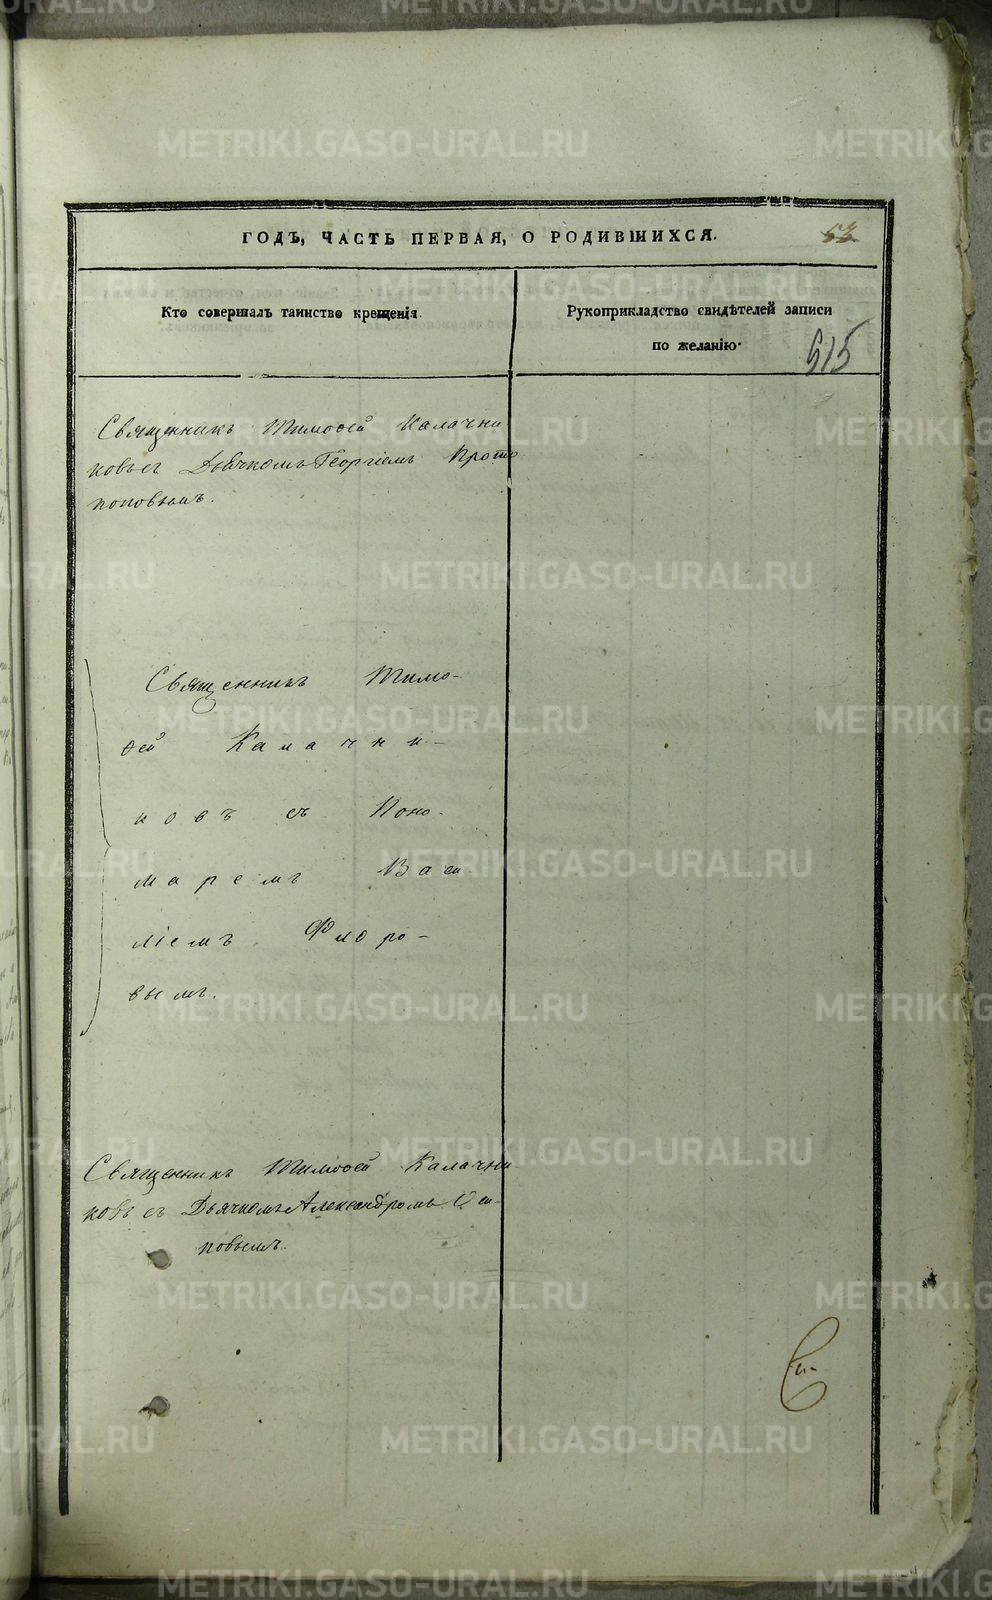 ГОДЪ, ЧАСТЬ ПЕРВАЯ, О РОДИВШИХСЯ.
53
Кто совершалъ таинство крещенія.
Рукоприкладство свидѣтелей записи
по желанію.
515
Священникъ Тимоѳей Калачни
ковъ съ Дьячкомъ Георгіемъ Прото
поповымъ.
Священникъ Тимо-
ѳей Калачни-
ковъ съ Поно-
маремъ Васи
ліемъ Флоро-
вымъ.
Священникъ Тимоѳей Калачни-
ковъ съ Дьячкомъ Александромъ Оси-
повымъ.
METRIKI.GASO-URAL.RU